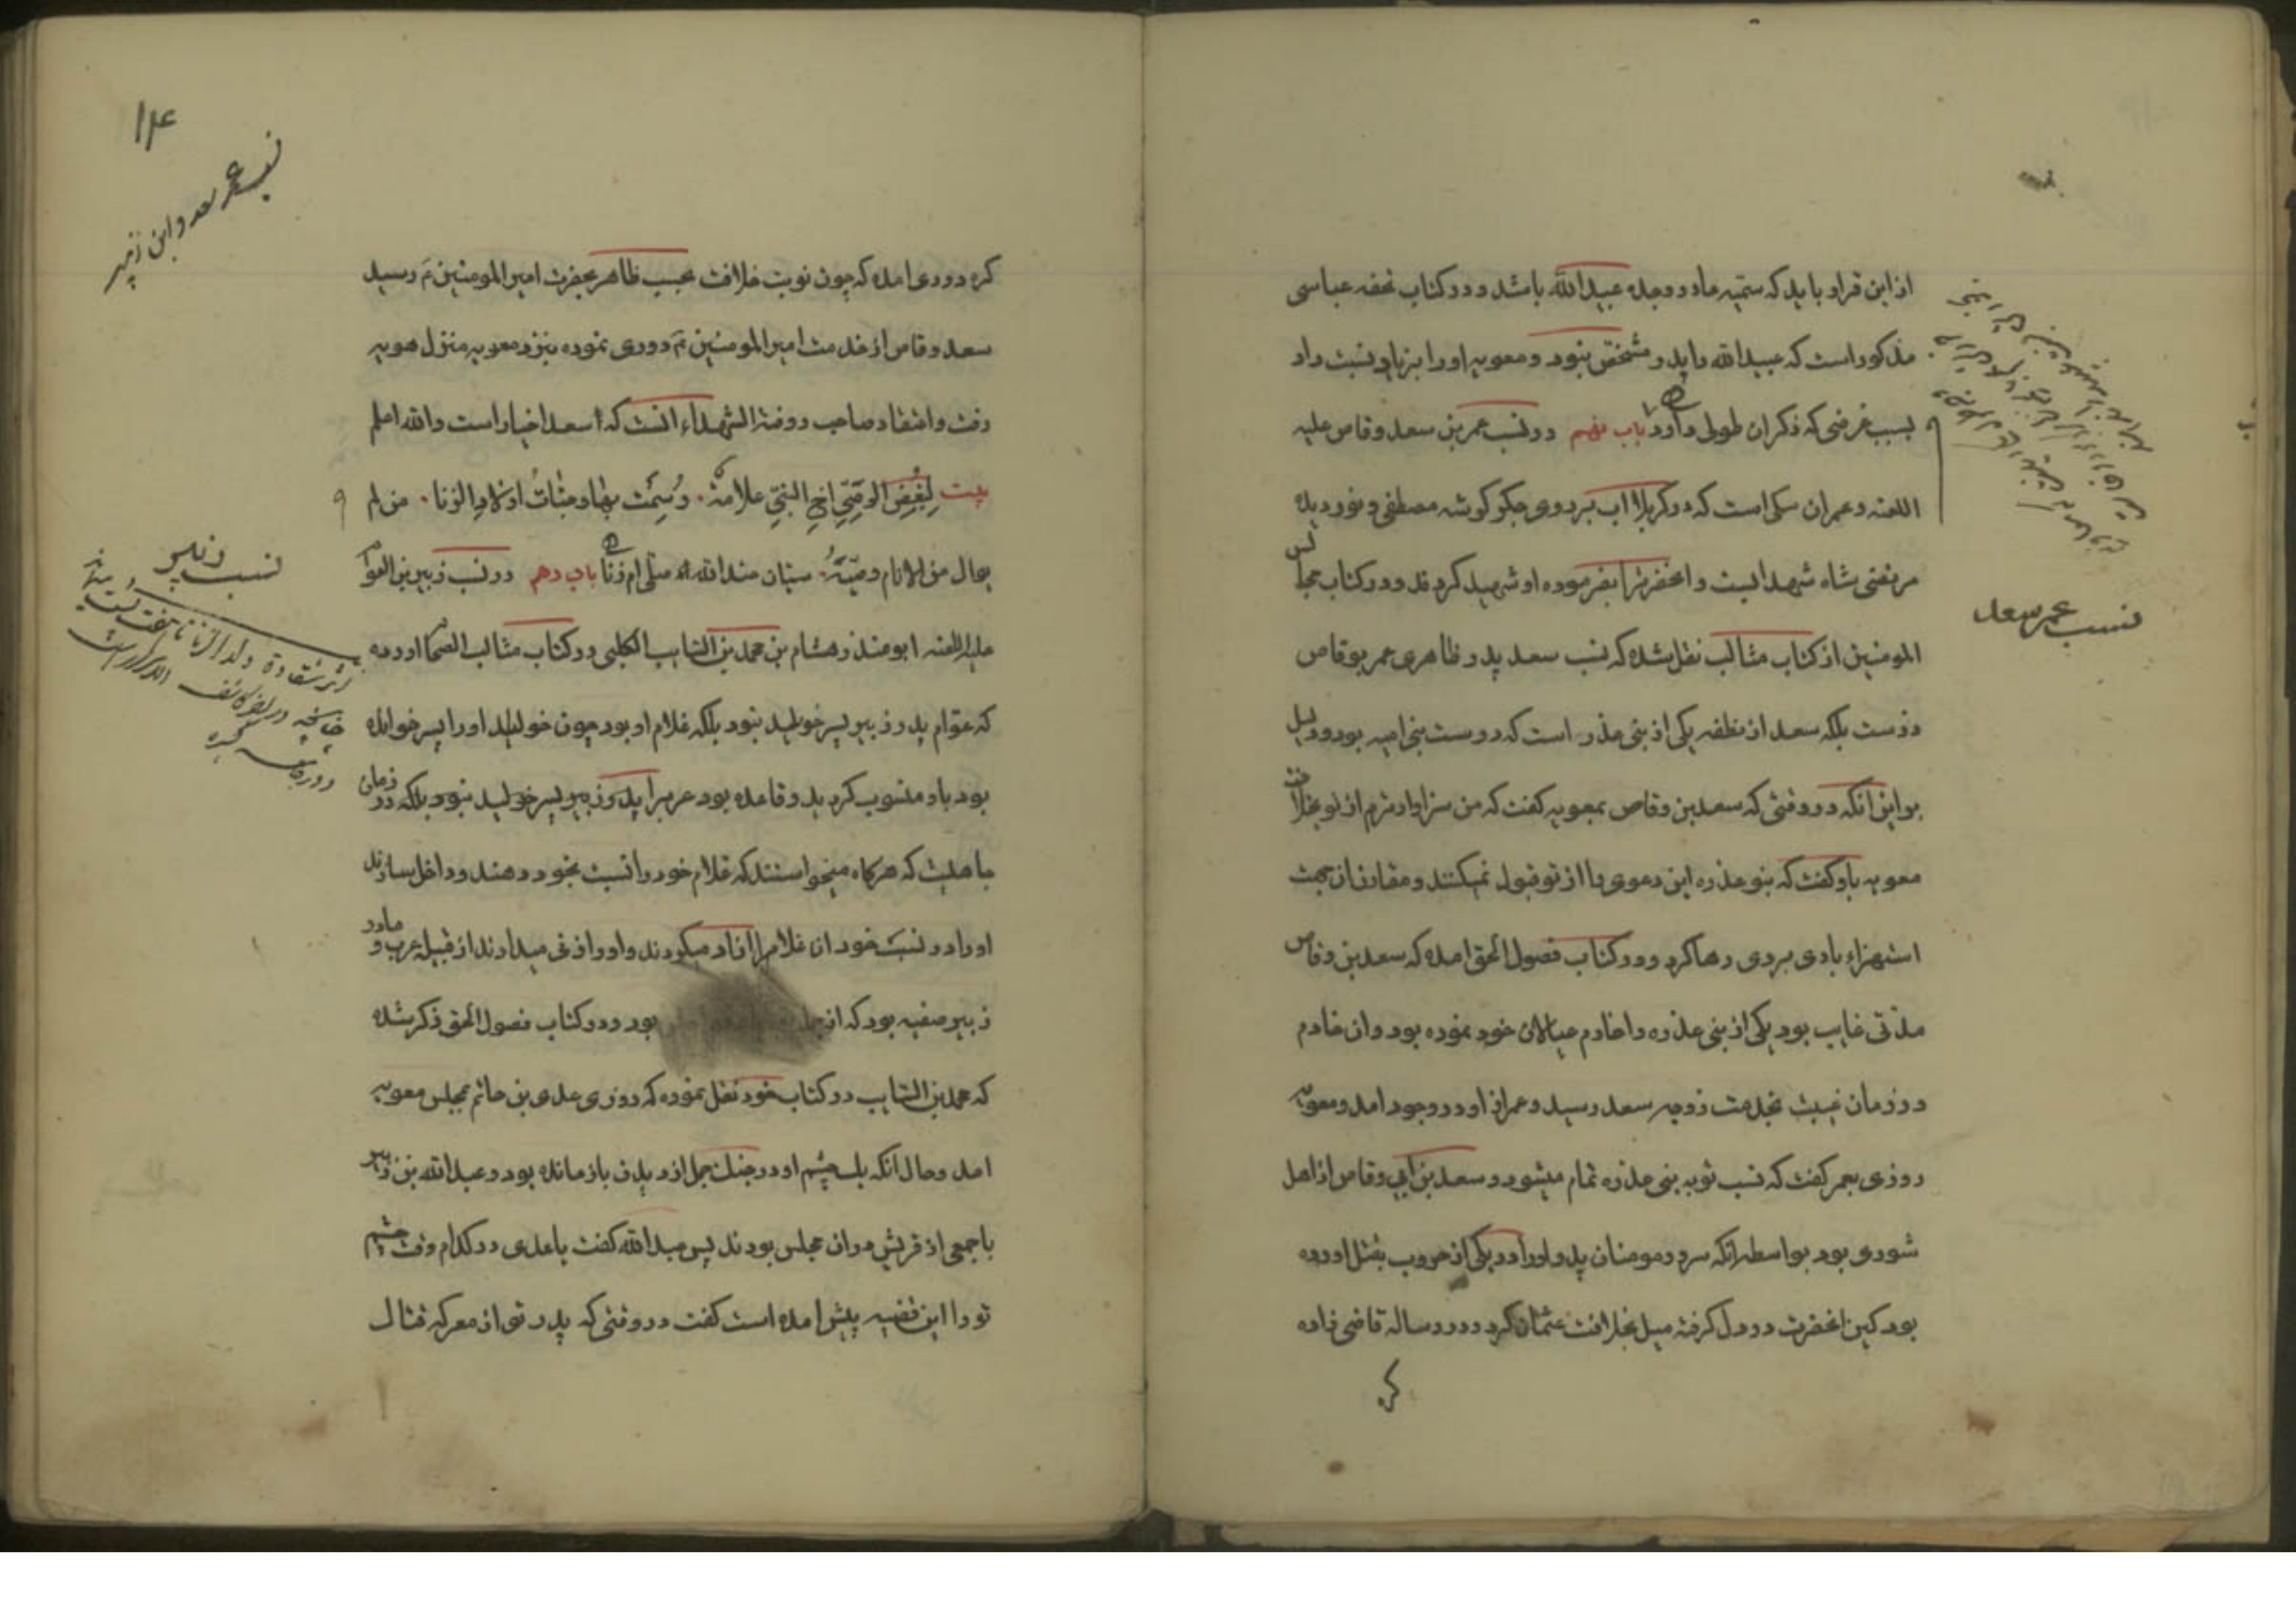 از این قرار باید که سمیه مادر و جده عبیدالله باشد و در کتاب تحفه عباسی
مذکور است که عبیدالله را پدر مشخص نبود و معویه او را بزیاد نسبت داد
بسبب غرضی که ذکر آن طولی دارد باب نهم در نسب عمر بن سعد وقاص علیه
اللعنه و عمر ان سکی است که در کربلا اب بر روی جکر کوشه مصطفی و نور دیده
مرتضی شاه شهدا بست و انحضرت را بفرموده او شهید کردند و در کتاب مجالس
المومنین از کتاب مثالب نقل شده که نسب سعد پدر ظاهری عمر بوقاص
درست بلکه سعد از نطفه یکی از بنی عذره است که دوست بنی امیه بود و دلیل
بر این انکه در وقتی که سعد بن وقاص بمعویه کفت که من سزاوارترم از تو بخلافت
معویه باو کفت که بنو عذره این دعوی را از تو قبول نمیکنند و مقارن ان جهت
استهزاء بادی بر وی رها کرد و در کتاب فصول الحق امده که سعد بن وقاص
مدتی غایب بود یکی از بنی عذره را خادم عیالان خود نموده بود و ان خادم
در زمان غیبت بخدمت زوجه سعد رسید و عمر از او در وجود امد و معویه
روزی بعمر کفت که نسب تو به بنی عذره تمام میشود و سعد بن ابی وقاص از اهل
شوری بود بواسطه انکه سرور مومنان پدر او را در یکی از حروب بقتل اورده
بود کین انحضرت در دل کرفته میل بخلافت عثمان کرد و در رساله قاضی زاده
کره
نسب عمر سعد
۱۴
نسب عمر سعد و ابن زبیر
کره رودی امده که چون نوبت خلافت بحسب ظاهر بحضرت امیرالمومنین ع رسید
سعد وقاص از خدمت امیرالمومنین ع دوری نموده بنزد معویه منزل هویه
رفت و اعتقاد صاحب روضة الشهداء انست که اسعد اخیار است والله اعلم
بیت لبغض الوصی اخی النبی علامة وسمت بها وجنات اولاد الزنا من لم
یوال من الانام وصیه سیان عندالله صلی ام زنا باب دهم در نسب زبیر بن العوام
علیه اللعنه ابو منذر هشام بن محمد بن السایب الکلبی در کتاب مثالب الصحابه اورده
که عوام پدر زبیر پسر خویلد نبود بلکه غلام او بود چون خویلد او را پسر خوانده
بود باو منسوب کردید و قاعده بود عرب را پدر زبیر پسر خویلد نبود بلکه در زمان
جاهلیت که هرکاه میخواستند که غلام خود را نسبت بخود دهند و داخل سازند
او را در نسب خود ان غلام را ازاد میکردند و او را زنی میدادند از قبیله عرب و مادر
زبیر صفیه بود که از بود و در کتاب فصول الحق ذکر شده
که محمد بن السایب در کتاب خود نقل نموده که روزی عدی بن حاتم بمجلس معویه
امد و حال انکه یک چشم او در جنک جمل از دیدن باز مانده بود و عبدالله بن زبیر
با جمعی از قریش در ان مجلس بودند پس عبدالله کفت یا عدی در کدام وقت چشم
تو را این قضیه پیش امده است کفت در وقتی که پدر تو از معرکه قتال
نسب زبیر